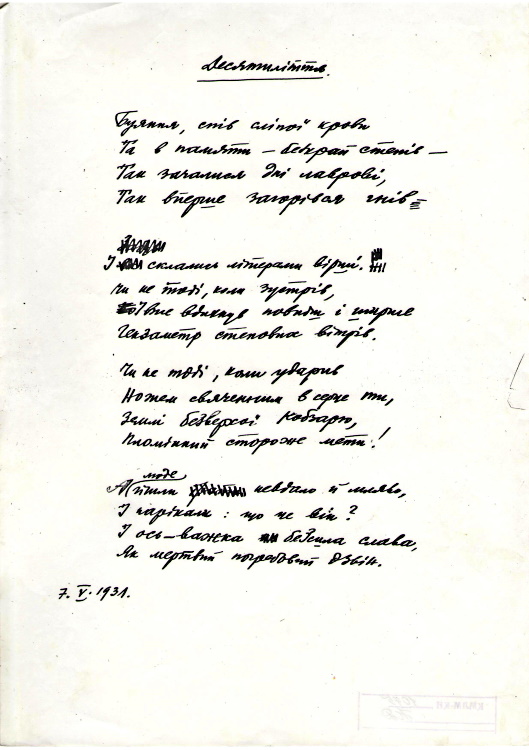 Десятиліття.
Буяння, спів сліпої крови
Та в памяти — безкрай степів —
Так зачалися дні лаврові,
Так вперше загорівся гнів
І склались літерами вірші.
Чи не тоді, коли зустрів,
вдихнув повніш і ширше
Гекзаметр степових вітрів.
Чи не тоді, коли ударив
Ножем свяченим в серце ти,
Землі безверхої Кобзарю,
Пломінний стороже мети!
А йшли люде невдало й мляво,
І нарікали: що не він?
І ось — важка безсила слава,
Як мертвий погребовий дзвін.
7. V. 1931.